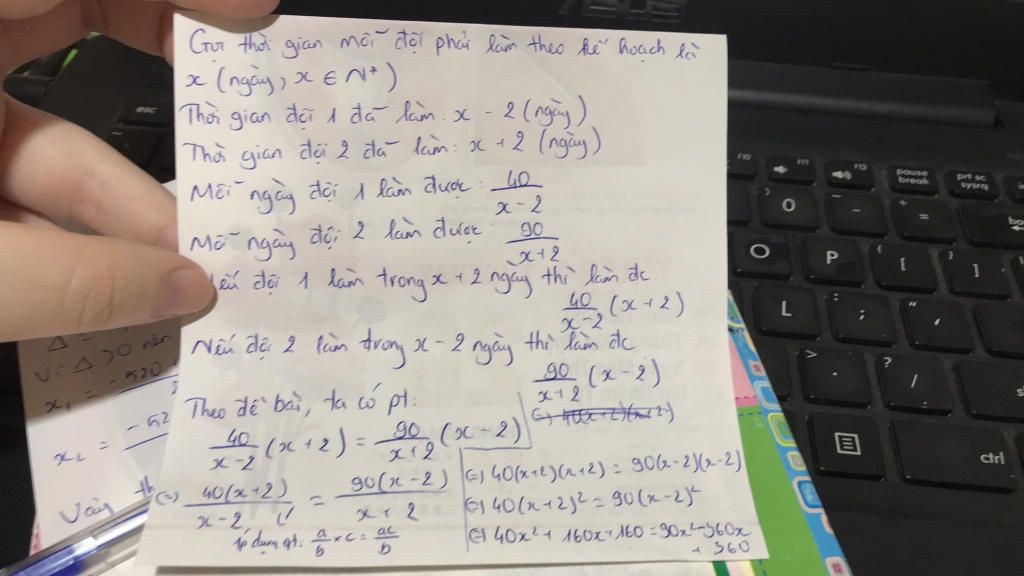 ASUS
Gọi thời gian mỗi đội phải làm theo kế hoạch là
x (ngày, x ∈ N*)
Thời gian đội 1 đã làm: x - 2 (ngày)
Thời gian đội 2 đã làm: x + 2 (ngày)
Mỗi ngày đội 1 làm được: 40/(x-2)
Mỗi ngày đội 2 làm được: 90/(x+2)
đội 1 làm trong x + 2 ngày thì làm đc
40/(x-2) (x+2)
Nếu đội 2 làm trong x - 2 ngày thì làm đc
90/(x+2) (x-2)
Theo đề bài, ta có pt:
40/(x-2) (x+2) = 90/(x+2) (x-2)
(=) 40(x+2)/(x-2) = 90(x-2)/(x+2)
áp dụng qt: a/b × c = ac/b
(=) 40(x+2)(x+2) = 90(x-2)(x-2)
(=) 40(x+2)² = 90(x-2)²
(=) 40x² + 160x + 160 = 90x² - 360x
+ 360
Δ =
Vì Δ > 0 nên
x₁ = - 520
x₂ =
Vậy
esc
F10
F11
F12
pause
break
prt sc
sysrq
)
0
_
-
+
=
O
P
{
[
}
]
L
:
;
"
'
>
.
?
/
ctrl